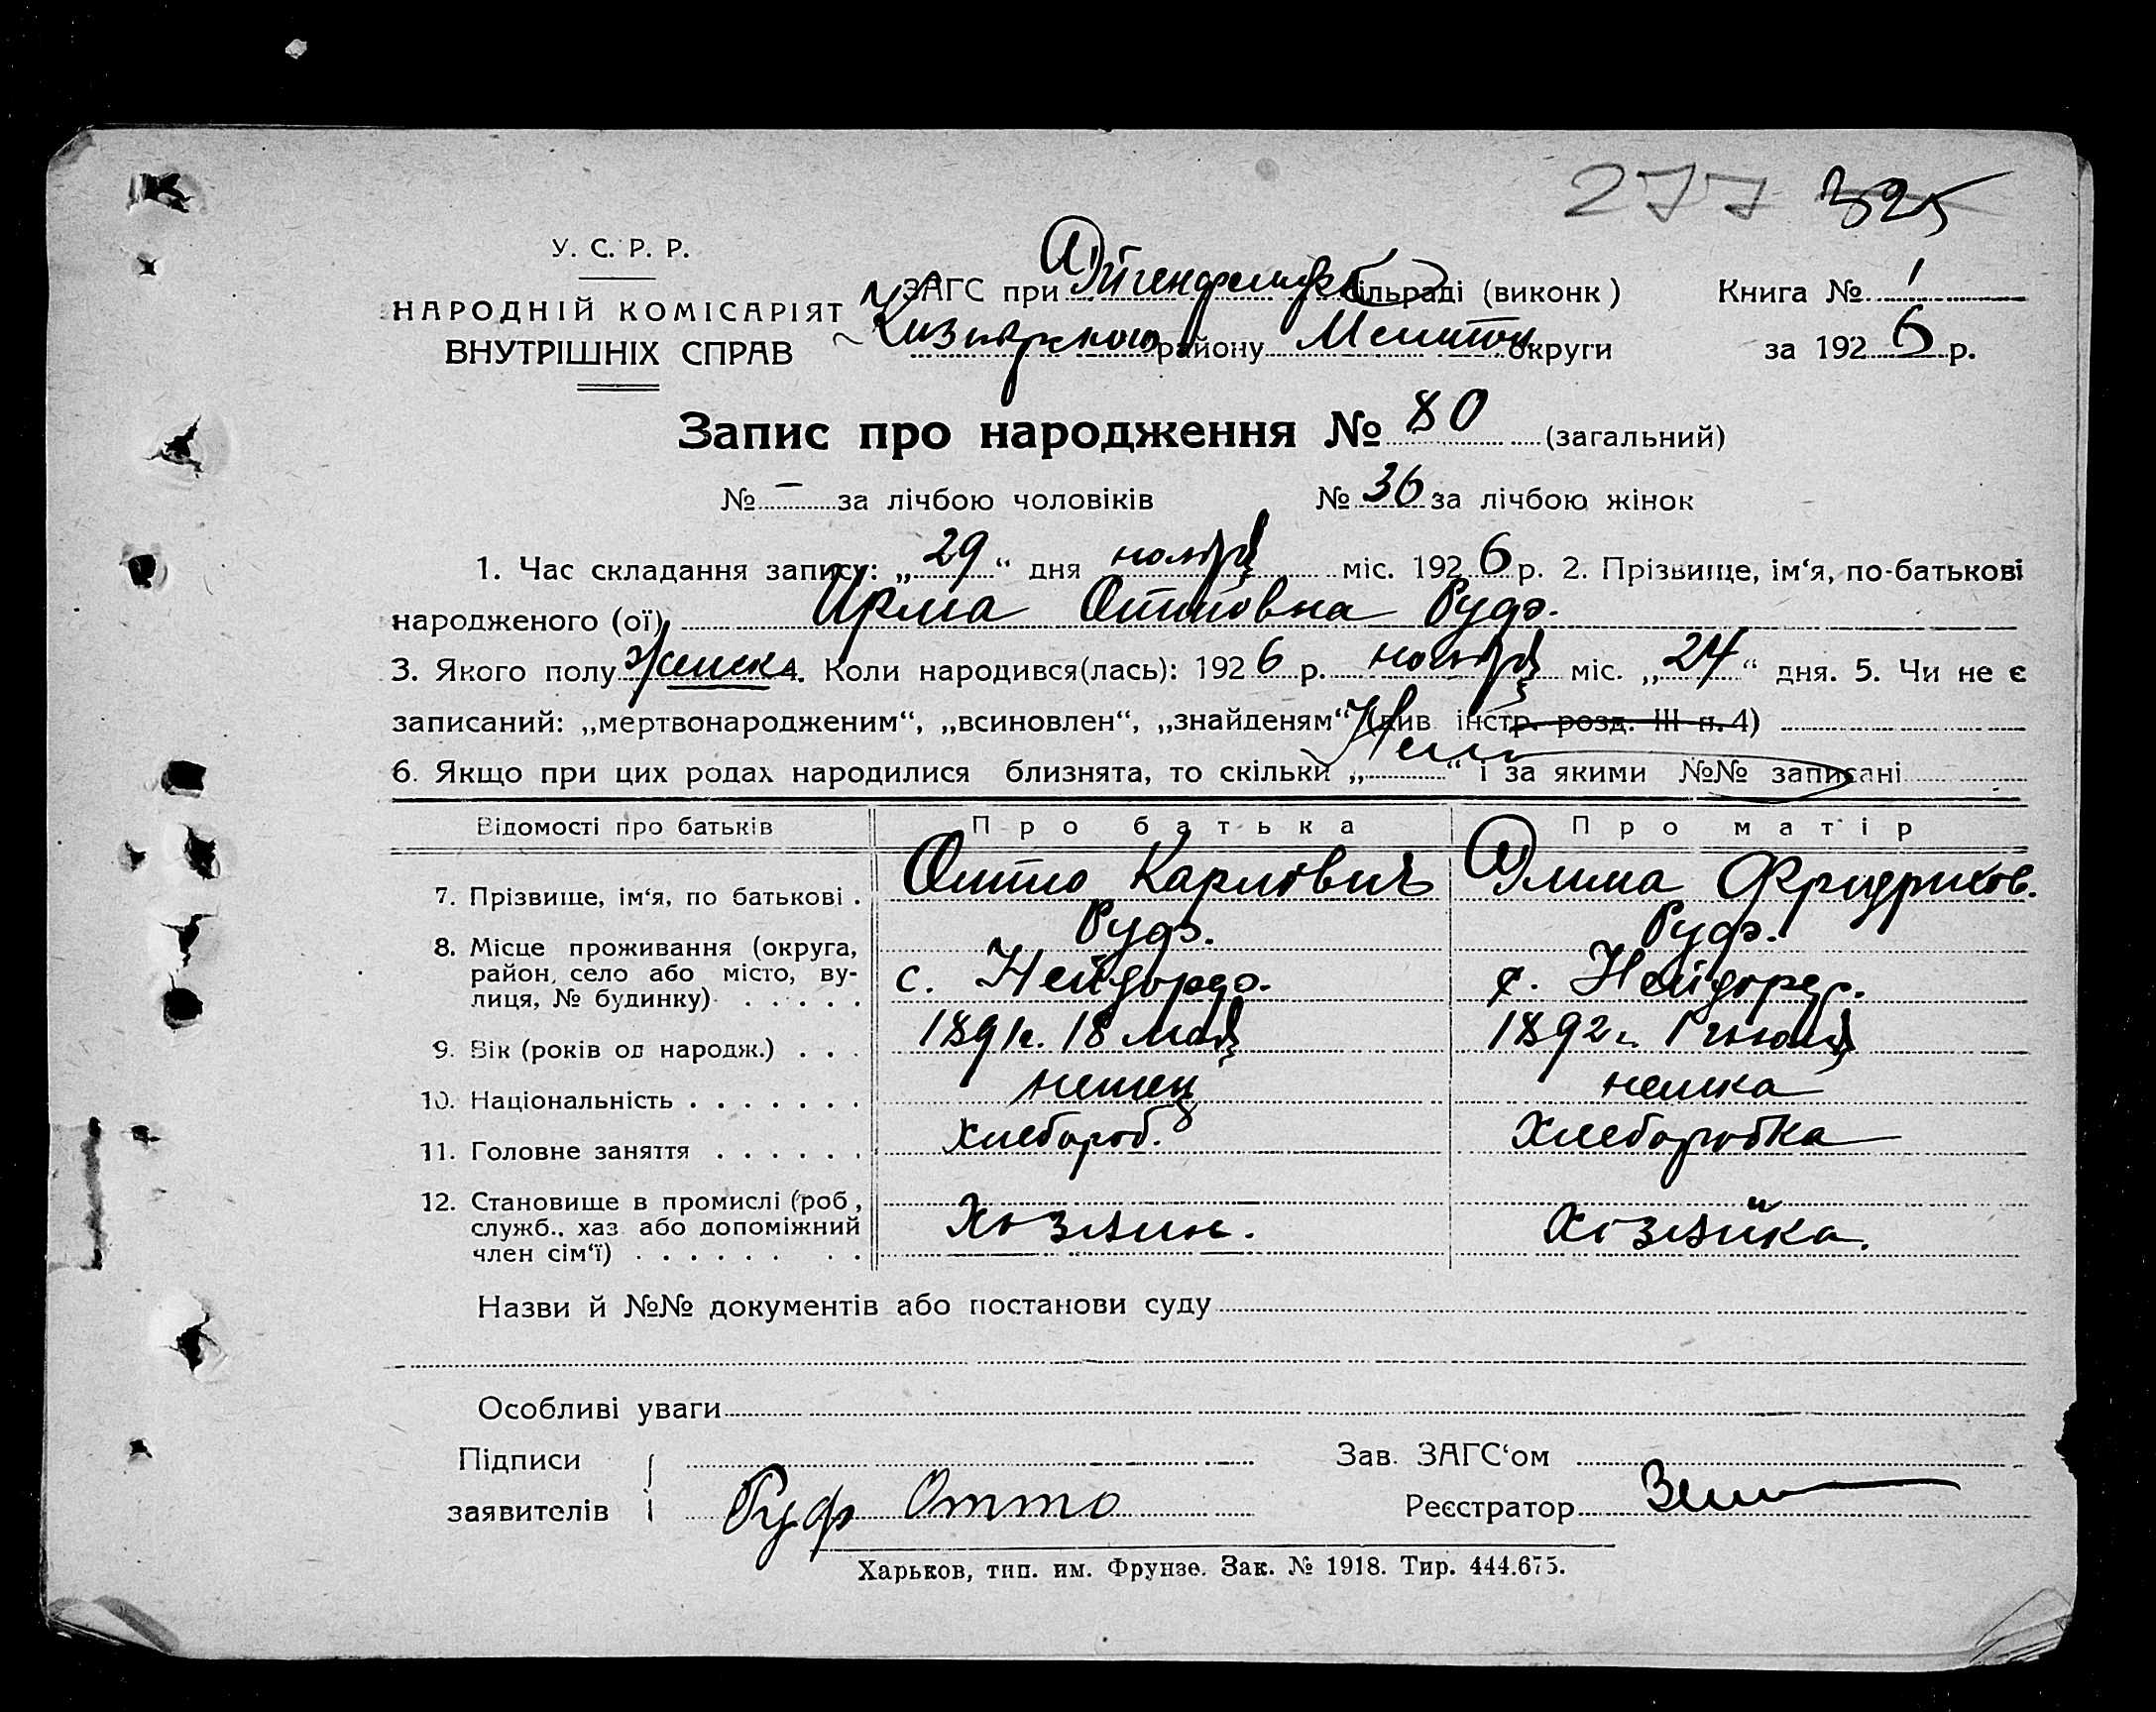 277 325
У. С. Р. Р.
НАРОДНІЙ КОМІСАРІЯТ
ВНУТРІШНІХ СПРАВ
ЗАГС при Эйгенфельдск сільраді (виконк) Книга № 1
району Мелитоп округи за 1926 р.
Запис про народження № 80 (загальний)
№ — за лічбою чоловіків № 36 за лічбою жінок
1. Час складання запису: „29“ дня ноября міс. 1926 р. 2. Прізвище, ім‘я, по-батькові
народженого (ої) Ирма Оттовна Руфф.
3. Якого полу женск 4. Коли народився(лась): 1926 р. ноября міс. „24“ дня. 5. Чи не є
записаний: „мертвонародженим“, „всиновлен“, „знайденям“ (див інстр. розд. III п. 4)
Нет
6. Якщо при цих родах народилися близнята, то скільки „ “ і за якими №№ записані
Відомості про батьків Про батька Про матір
7. Прізвище, ім‘я, по батькові . Отто Карлович Фридрихов.
8. Місце проживання (округа,
район, село або місто, ву-
лиця, № будинку) . . . . . с. с.
9. Вік (років од народж.) . . . 1891г. 18 мая 1892г. 1 июля
10. Національність . . . . . . . немец немка
11. Головне заняття . . . . . . Хлебороб. Хлеборобка
12. Становище в промислі (роб,
служб., хаз або допоміжний
член сім‘ї) . . . . . . . . Хозяин. Хозяйка.
Назви й №№ документів або постанови суду
Особливі уваги
Підписи Зав. ЗАГС‘ом
заявителів Руф Отто Реєстратор
Харьков, тип. им. Фрунзе. Зак. № 1918. Тир. 444.675.